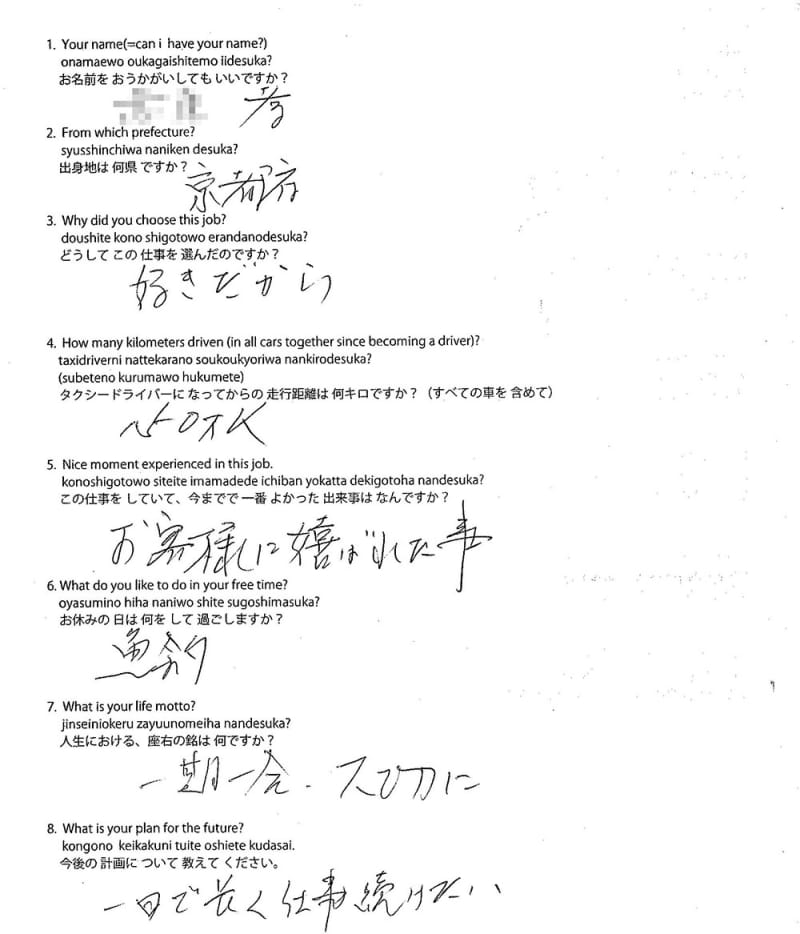 1. Your name(=can i have your name?)
onamaewo oukagaishitemo iidesuka?
お名前を おうかがいしても いいですか？
2. From which prefecture?
syusshinchiwa naniken desuka?
出身地は 何県 ですか？
京都府
3. Why did you choose this job?
doushite kono shigotowo erandanodesuka?
どうして この 仕事を 選んだのですか？
好きだから
4. How many kilometers driven (in all cars together since becoming a driver)?
taxidriverni nattekarano soukoukyoriwa nankirodesuka?
(subeteno kurumawo hukumete)
タクシードライバーに なってからの 走行距離は 何キロですか？（すべての車を 含めて）
5. Nice moment experienced in this job.
konoshigotowo siteite imamadede ichiban yokatta dekigotoha nandesuka?
この仕事を していて、今までで 一番 よかった 出来事は なんですか？
お客様に嬉ばれた事
6. What do you like to do in your free time?
oyasumino hiha naniwo shite sugoshimasuka?
お休みの 日は 何を して 過ごしますか？
魚釣り
7. What is your life motto?
jinseiniokeru zayuunomeiha nandesuka?
人生における、座右の銘は 何ですか？
一期一会. 大切に
8. What is your plan for the future?
kongono keikakuni tuite oshiete kudasai.
今後の 計画に ついて 教えて ください。
一日で長く仕事続けたい